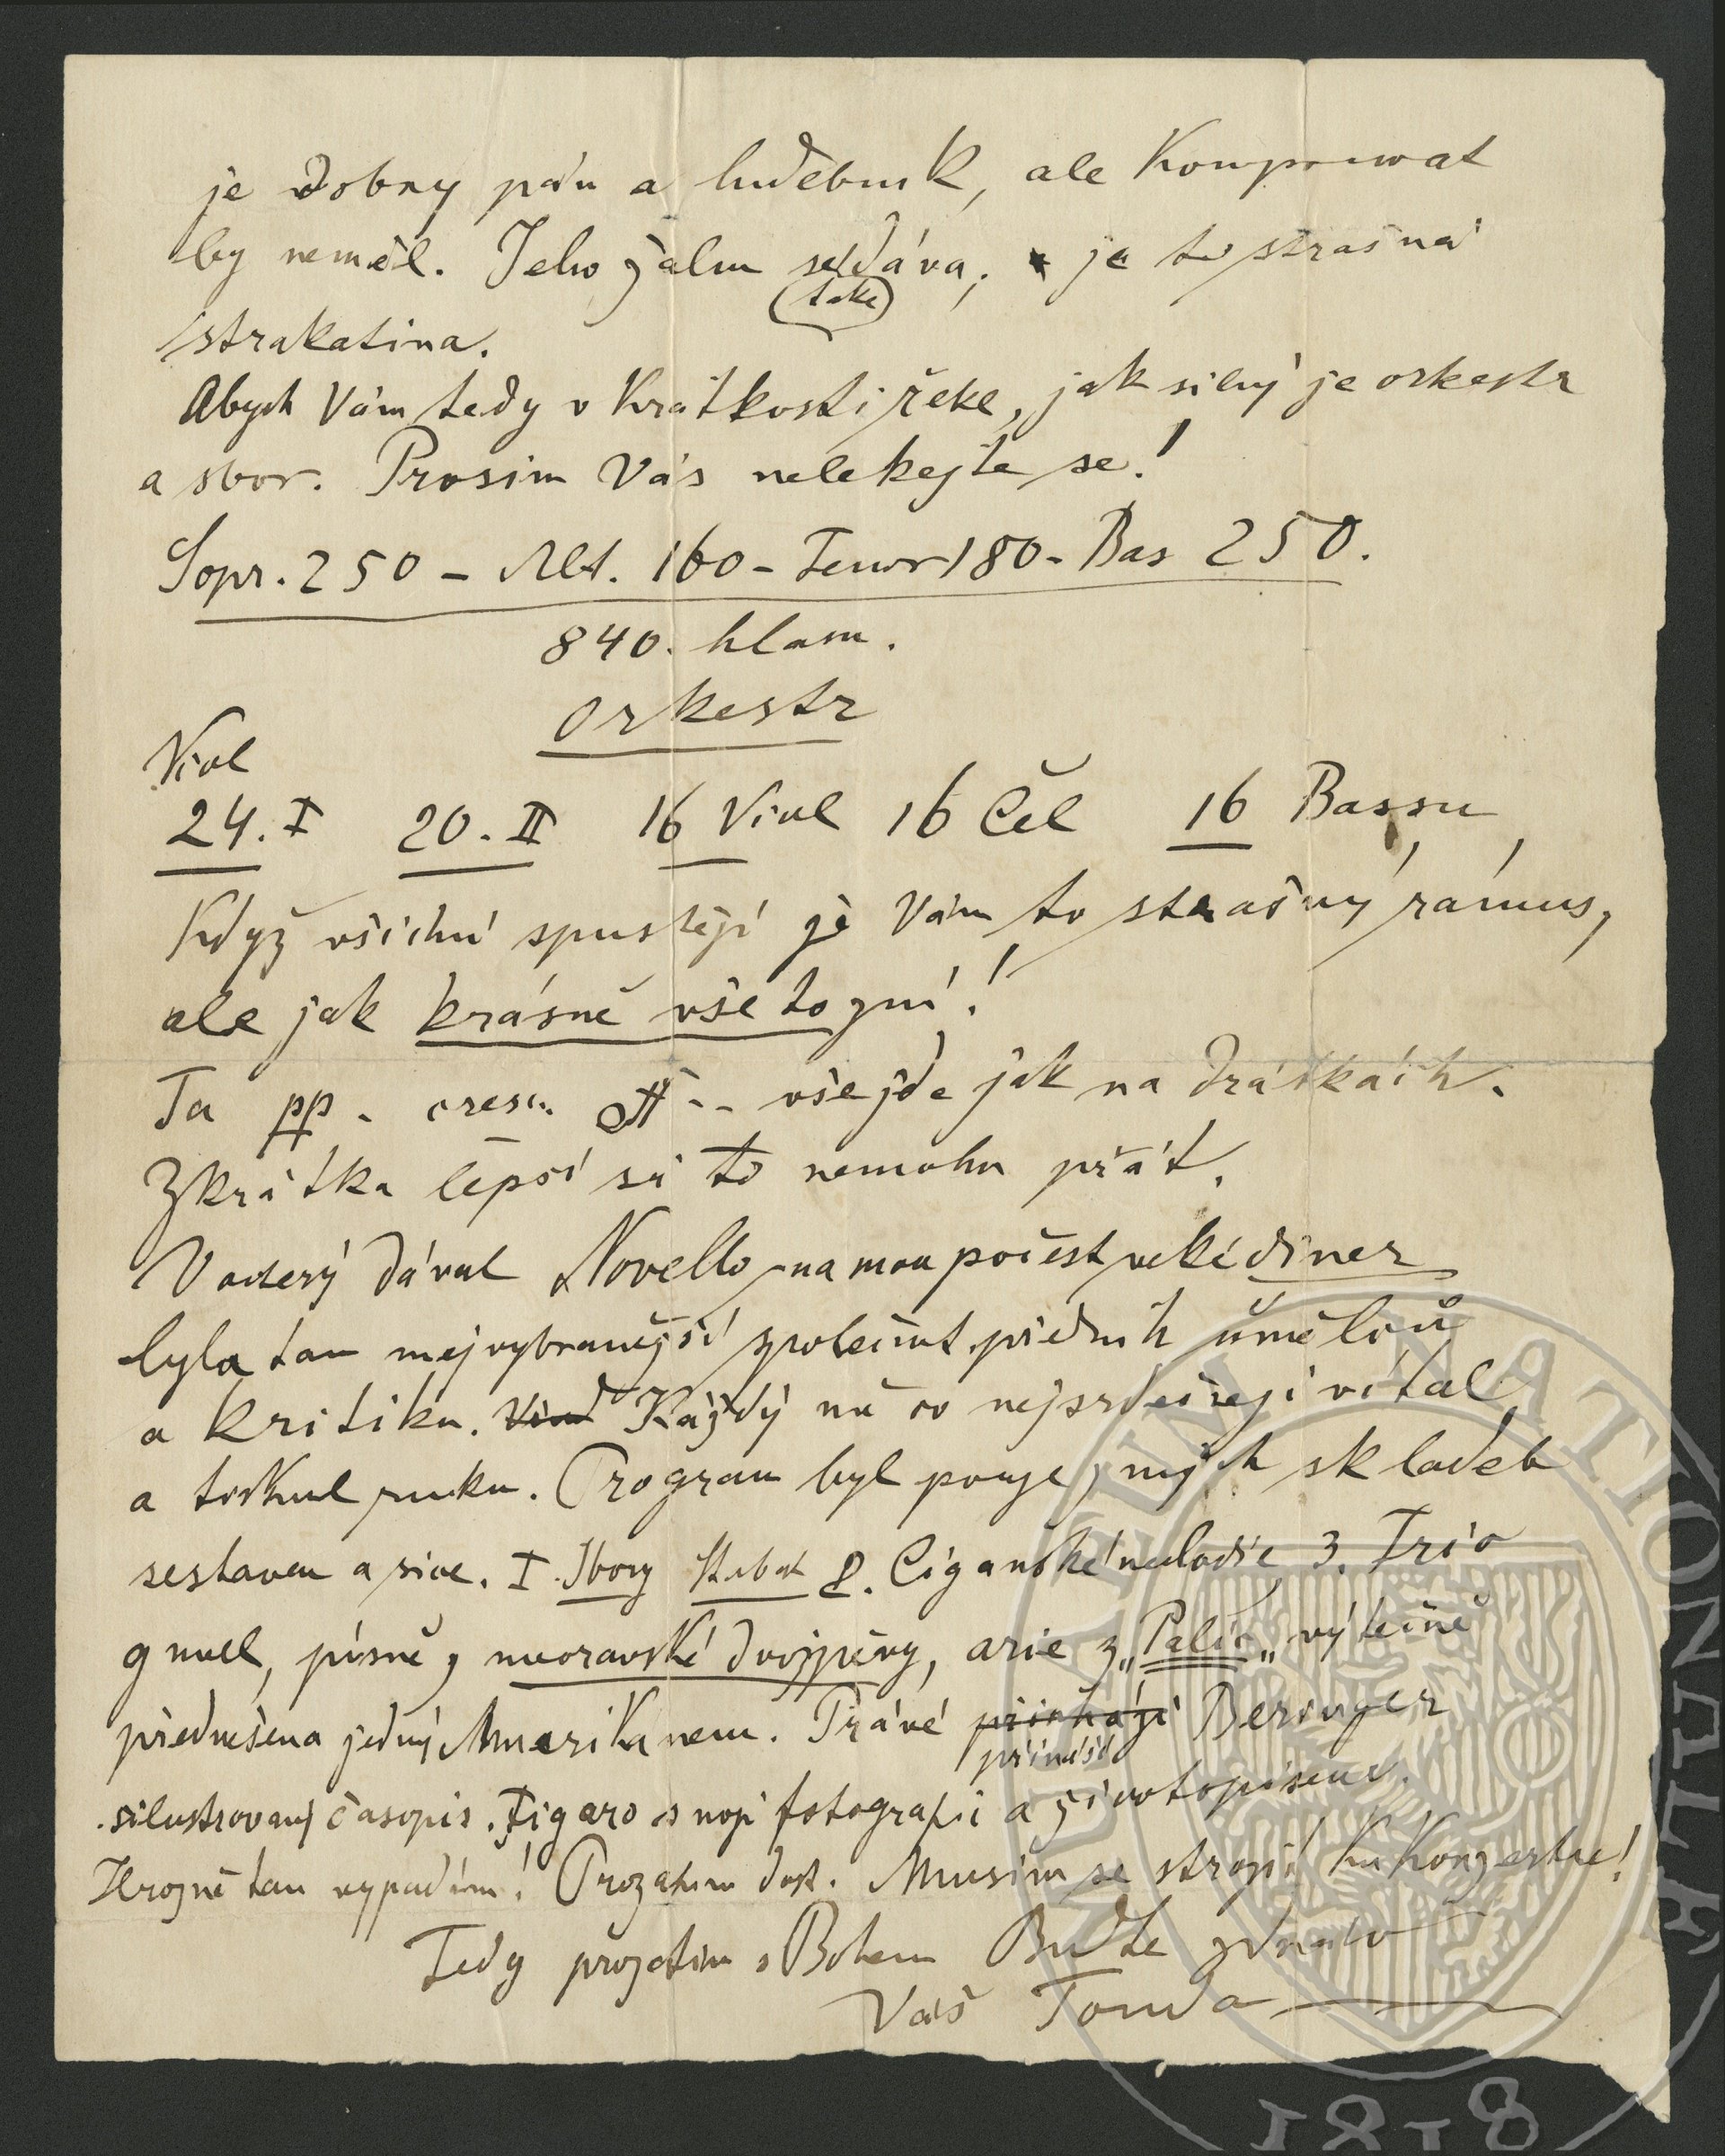 je dobry pán a hudebnik, ale Komponovat
by neměl. Jeho žalm se dáva, je to strašná
(take)
strakatina.
Abych Vám tedy v Krátkosti řekl, jak silný je orkestr
a sbor. Prosim Vás nelekejte se!
Sopr. 250 – Alt. 160 – Tenor 180 – Bas 250.
840. hlasu.
Orkestr
Viol
24. I 20. II 16 Viol 16 Čel 16 Bassu
Když všichni spustěji je Vám to strašný rámus,
ale jak krásně vše to zní!
Ta pp - cresc. ff -- vše jde jak na drátkách.
Zkrátka lepší si to nemohu přát.
Včerý dával Novello na mou počest velké diner
byla tam nejvybranější společnost předních umělců
a kritiku. Každý mě co nejsrdečněji vital
a tisknul ruku. Program byl pouze z mých skladeb
sestaven a sice. I. Sbory 2. Ciganské melodie, 3. Trio
g moll, písně, moravské dvojzpěvy, arie z „Palic„ výtečně
přednešena jedným Amerikanem. Právě přichází Beringer
přináší
silustrovaný časopis. Figaro s moji fotografii a životopisem.
Hrozně tam vypadám! Prozatim dost. Musim se strojit Ku Konzertu!
Tedy prozatim s Bohem Buďte zdravi
Váš Tonda
MUSEUM NATIONALE
1818